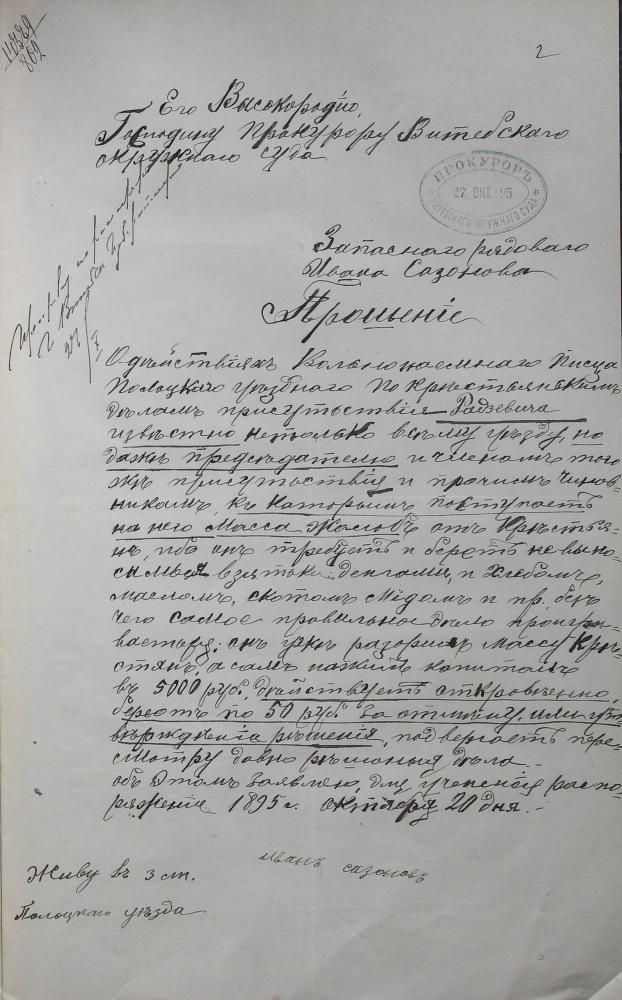 14329
802
2
Его Высокородію,
Господину Прокурору Витебскаго
окружнаго суда
ПРОКУРОРЪ
27. ОКТ. 95
ВИТЕБСКАГО ОКРУЖНАГО СУДА
Запаснаго рядоваго
Ивана Сазонова
Прошеніе
О дѣйствіяхъ Вольнонаемнаго Писца
Полоцкаго уѣзднаго По крестьянскимъ
дѣламъ присутствія Радзевича
извѣстно нетолько всѣму уѣзду, но
даже предсѣдателю и членомъ того
же присутствія и прочимъ чинов-
никамъ, къ которымъ поступаетъ
на него Масса Жалобъ отъ Крѣстья-
нъ, ибо онъ требуетъ и беретъ невыно-
симыя взятки: деньгами, и Хлѣбомъ,
масломъ, скотомъ Мѣдомъ и пр. безъ
чего самое правильное дѣло проигры-
вается: онъ уже разорилъ массу Кре-
стянъ, а самъ нажилъ капиталъ
въ 5000 руб., дѣйствуетъ откровенно,
беретъ по 50 руб. за отмѣну, или ут-
вѣржденія рѣшенія, подвергаетъ пере-
смотру давно рѣшоныя дѣла
объ Этомъ заявляю, для учененія распо-
ряженія 1895 г. октября 20 дня.
иванъ сазоновъ
Живу въ 3 ст.
Полоцкаго уѣзда